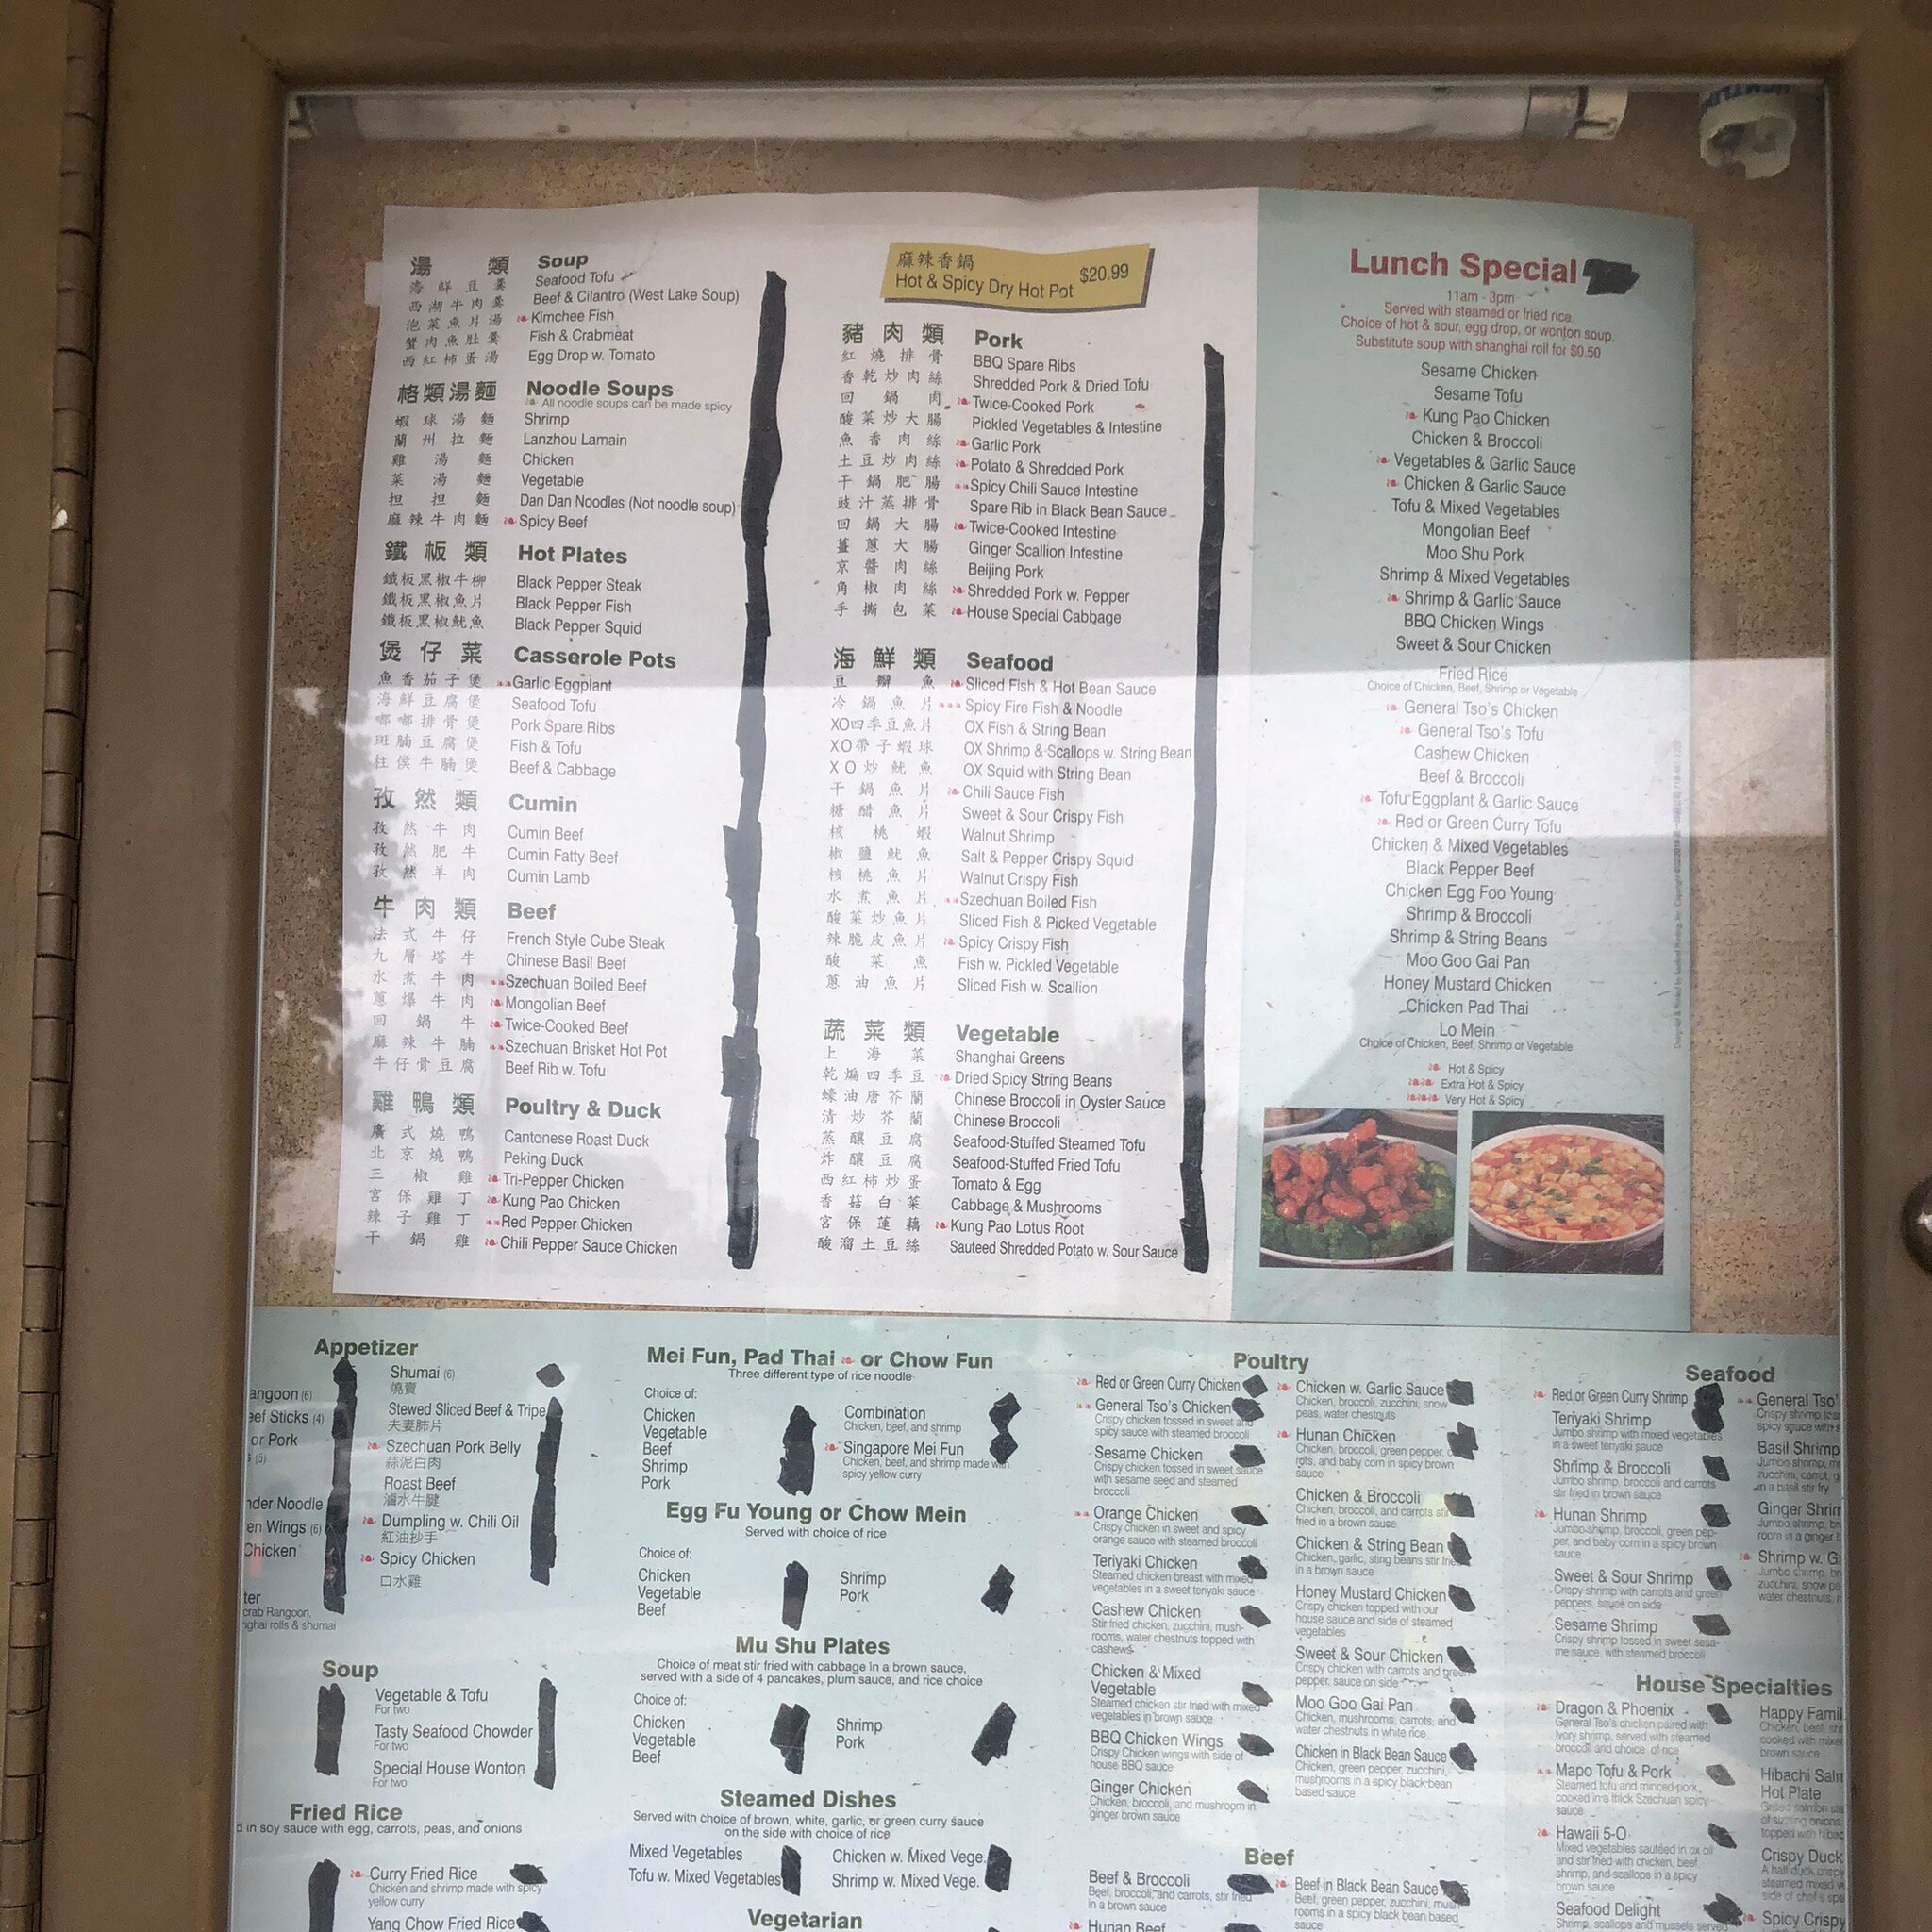 湯 類 Soup
海鮮豆羹 Seafood Tofu
西湖牛肉羹 Beef & Cilantro (West Lake Soup)
泡菜魚片湯 Kimchee Fish
蟹肉魚肚羹 Fish & Crabmeat
西紅柿蛋湯 Egg Drop w. Tomato
格類湯麵 Noodle Soups
All noodle soups can be made spicy
蝦球湯麵 Shrimp
蘭州拉麵 Lanzhou Lamain
雞湯麵 Chicken
菜湯麵 Vegetable
担担麵 Dan Dan Noodles (Not noodle soup)
麻辣牛肉麵 Spicy Beef
鐵板類 Hot Plates
鐵板黑椒牛柳 Black Pepper Steak
鐵板黑椒魚片 Black Pepper Fish
鐵板黑椒魷魚 Black Pepper Squid
煲仔菜 Casserole Pots
魚香茄子煲 Garlic Eggplant
海鮮豆腐煲 Seafood Tofu
嘟嘟排骨煲 Pork Spare Ribs
斑腩豆腐煲 Fish & Tofu
柱侯牛腩煲 Beef & Cabbage
孜然類 Cumin
孜然牛肉 Cumin Beef
孜然肥牛 Cumin Fatty Beef
孜然羊肉 Cumin Lamb
牛肉類 Beef
法式牛仔 French Style Cube Steak
九層塔牛 Chinese Basil Beef
水煮牛肉 Szechuan Boiled Beef
蔥爆牛肉 Mongolian Beef
回鍋牛 Twice-Cooked Beef
麻辣牛腩 Szechuan Brisket Hot Pot
牛仔骨豆腐 Beef Rib w. Tofu
雞鴨類 Poultry & Duck
廣式燒鴨 Cantonese Roast Duck
北京燒鴨 Peking Duck
三椒雞 Tri-Pepper Chicken
宮保雞丁 Kung Pao Chicken
辣子雞丁 Red Pepper Chicken
干鍋雞 Chili Pepper Sauce Chicken
麻辣香鍋
Hot & Spicy Dry Hot Pot $20.99
豬肉類 Pork
紅燒排骨 BBQ Spare Ribs
香乾炒肉絲 Shredded Pork & Dried Tofu
回鍋肉 Twice-Cooked Pork
酸菜炒大腸 Pickled Vegetables & Intestine
魚香肉絲 Garlic Pork
土豆炒肉絲 Potato & Shredded Pork
干鍋肥腸 Spicy Chili Sauce Intestine
豉汁蒸排骨 Spare Rib in Black Bean Sauce
回鍋大腸 Twice-Cooked Intestine
薑蔥大腸 Ginger Scallion Intestine
京醬肉絲 Beijing Pork
角椒肉絲 Shredded Pork w. Pepper
手撕包菜 House Special Cabbage
海鮮類 Seafood
豆瓣魚 Sliced Fish & Hot Bean Sauce
冷鍋魚片 Spicy Fire Fish & Noodle
XO四季豆魚片 OX Fish & String Bean
XO帶子蝦球 OX Shrimp & Scallops w. String Bean
XO炒魷魚 OX Squid with String Bean
干鍋魚片 Chili Sauce Fish
糖醋魚片 Sweet & Sour Crispy Fish
核桃蝦 Walnut Shrimp
椒鹽魷魚 Salt & Pepper Crispy Squid
核桃魚片 Walnut Crispy Fish
水煮魚片 Szechuan Boiled Fish
酸菜炒魚片 Sliced Fish & Picked Vegetable
辣脆皮魚片 Spicy Crispy Fish
酸菜魚 Fish w. Pickled Vegetable
蔥油魚片 Sliced Fish w. Scallion
蔬菜類 Vegetable
上海菜 Shanghai Greens
乾煸四季豆 Dried Spicy String Beans
蠔油唐芥蘭 Chinese Broccoli in Oyster Sauce
清炒芥蘭 Chinese Broccoli
蒸釀豆腐 Seafood-Stuffed Steamed Tofu
炸釀豆腐 Seafood-Stuffed Fried Tofu
西紅柿炒蛋 Tomato & Egg
香菇白菜 Cabbage & Mushrooms
宮保蓮藕 Kung Pao Lotus Root
酸溜土豆絲 Sauteed Shredded Potato w. Sour Sauce
Lunch Special
11am - 3pm
Served with steamed or fried rice.
Choice of hot & sour, egg drop, or wonton soup.
Substitute soup with shanghai roll for $0.50
Sesame Chicken
Sesame Tofu
Kung Pao Chicken
Chicken & Broccoli
Vegetables & Garlic Sauce
Chicken & Garlic Sauce
Tofu & Mixed Vegetables
Mongolian Beef
Moo Shu Pork
Shrimp & Mixed Vegetables
Shrimp & Garlic Sauce
BBQ Chicken Wings
Sweet & Sour Chicken
Fried Rice
Choice of Chicken, Beef, Shrimp or Vegetable
General Tso's Chicken
General Tso's Tofu
Cashew Chicken
Beef & Broccoli
Tofu Eggplant & Garlic Sauce
Red or Green Curry Tofu
Chicken & Mixed Vegetables
Black Pepper Beef
Chicken Egg Foo Young
Shrimp & Broccoli
Shrimp & String Beans
Moo Goo Gai Pan
Honey Mustard Chicken
Chicken Pad Thai
Lo Mein
Choice of Chicken, Beef, Shrimp or Vegetable
Hot & Spicy
Extra Hot & Spicy
Very Hot & Spicy
Appetizer
angoon (6)
eef Sticks (4)
or Pork
(5)
nder Noodle
en Wings (6)
Chicken
ter
crab Rangoon,
nghai rolls & shumai
Shumai (6)
燒賣
Stewed Sliced Beef & Tripe
夫妻肺片
Szechuan Pork Belly
蒜泥白肉
Roast Beef
滷水牛腱
Dumpling w. Chili Oil
紅油抄手
Spicy Chicken
口水雞
Soup
Vegetable & Tofu
For two
Tasty Seafood Chowder
For two
Special House Wonton
For two
Fried Rice
d in soy sauce with egg, carrots, peas, and onions
Curry Fried Rice
Chicken and shrimp made with spicy
yellow curry
Yang Chow Fried Rice
Mei Fun, Pad Thai or Chow Fun
Three different type of rice noodle
Choice of:
Chicken
Vegetable
Beef
Shrimp
Pork
Combination
Chicken, beef, and shrimp
Singapore Mei Fun
Chicken, beef, and shrimp made with
spicy yellow curry
Egg Fu Young or Chow Mein
Served with choice of rice
Choice of:
Chicken
Vegetable
Beef
Shrimp
Pork
Mu Shu Plates
Choice of meat stir fried with cabbage in a brown sauce,
served with a side of 4 pancakes, plum sauce, and rice choice
Choice of:
Chicken
Vegetable
Beef
Shrimp
Pork
Steamed Dishes
Served with choice of brown, white, garlic, or green curry sauce
on the side with choice of rice
Mixed Vegetables
Tofu w. Mixed Vegetables
Chicken w. Mixed Vege.
Shrimp w. Mixed Vege.
Vegetarian
Poultry
Red or Green Curry Chicken
General Tso's Chicken
Crispy chicken tossed in sweet and
spicy sauce with steamed broccoli
Sesame Chicken
Crispy chicken tossed in sweet sauce
with sesame seed and steamed
broccoli
Orange Chicken
Crispy chicken in sweet and spicy
orange sauce with steamed broccoli
Teriyaki Chicken
Steamed chicken breast with mixed
vegetables in a sweet teriyaki sauce
Cashew Chicken
Stir fried chicken, zucchini, mush-
rooms, water chestnuts topped with
cashews
Chicken & Mixed
Vegetable
Steamed chicken stir fried with mixed
vegetables in brown sauce
BBQ Chicken Wings
Crispy Chicken wings with side of
house BBQ sauce
Ginger Chicken
Chicken, broccoli, and mushroom in
ginger brown sauce
Chicken w. Garlic Sauce
Chicken, broccoli, zucchini, snow
peas, water chestnuts
Hunan Chicken
Chicken, broccoli, green pepper, c
rots, and baby corn in spicy brown
sauce
Chicken & Broccoli
Chicken, broccoli, and carrots stir
fried in a brown sauce
Chicken & String Bean
Chicken, garlic, sting beans stir fried
in a brown sauce
Honey Mustard Chicken
Crispy chicken topped with our
house sauce and side of steamed
vegetables
Sweet & Sour Chicken
Crispy chicken with carrots and green
pepper, sauce on side
Moo Goo Gai Pan
Chicken, mushrooms, carrots, and
water chestnuts in white rice
Chicken in Black Bean Sauce
Chicken, green pepper, zucchini,
mushrooms in a spicy black bean
based sauce
Beef
Beef & Broccoli
Beef, broccoli, and carrots, stir fried
in a brown sauce
Hunan Beef
Beef in Black Bean Sauce
Beef, green pepper, zucchini, mush
rooms in a spicy black bean based
sauce
Seafood
Red or Green Curry Shrimp
Teriyaki Shrimp
Jumbo shrimp with mixed vegetables
in a sweet teriyaki sauce
Shrimp & Broccoli
Jumbo shrimp, broccoli and carrots
stir fried in brown sauce
Hunan Shrimp
Jumbo shrimp, broccoli, green pep-
per, and baby corn in a spicy brown
sauce
Sweet & Sour Shrimp
Crispy shrimp with carrots and green
peppers, sauce on side
Sesame Shrimp
Crispy shrimp tossed in sweet sesa-
me sauce, with steamed broccoli
General Tso'
Crispy shrimp toss
spicy sauce with s
Basil Shrimp
Jumbo shrimp, m
zucchini, carrot, g
in a basil stir fry
Ginger Shrim
Jumbo shrimp, br
room in a ginger b
Shrimp w. Ga
Jumbo shrimp, br
zucchini, snow pe
water chestnuts,
House Specialties
Dragon & Phoenix
General Tso's chicken paired with
Ivory shrimp, served with steamed
broccoli and choice of rice
Mapo Tofu & Pork
Steamed tofu and minced pork,
cooked in a thick Szechuan spicy
sauce
Hawaii 5-O
Mixed vegetables sautéed in ox oil
and stir fried with chicken, beef,
shrimp, and scallops in a spicy
brown sauce
Seafood Delight
Shrimp, scallops and mussels served
Happy Famil
Chicken, beef, shr
cooked with mixed
brown sauce
Hibachi Salm
Hot Plate
Grilled salmon ste
of sizzling onions
topped with hibac
Crispy Duck
A half duck crispy
steamed mixed ve
side of chef's spe
Spicy Crispy